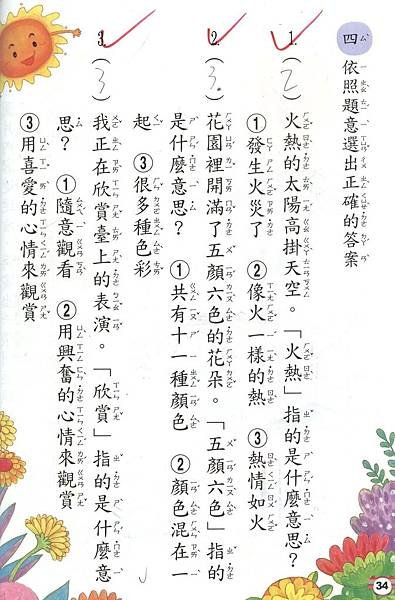 四 依照題意選出正確的答案
1.（2）火熱的太陽高掛天空。「火熱」指的是什麼意思？
①發生火災了 ②像火一樣的熱 ③熱情如火
2.（3）花園裡開滿了五顏六色的花朵。「五顏六色」指的
是什麼意思？ ①共有十一種顏色 ②顏色混在一
起 ③很多種色彩
3.（3）我正在欣賞臺上的表演。「欣賞」指的是什麼意
思？ ①隨意觀看 ②用興奮的心情來觀賞
③用喜愛的心情來觀賞
34